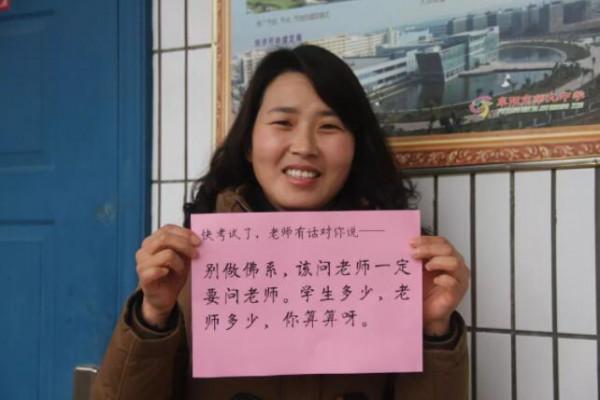 快考试了，老师有话对你说——
别做佛系，该问老师一定
要问老师。学生多少，老
师多少，你算算呀。